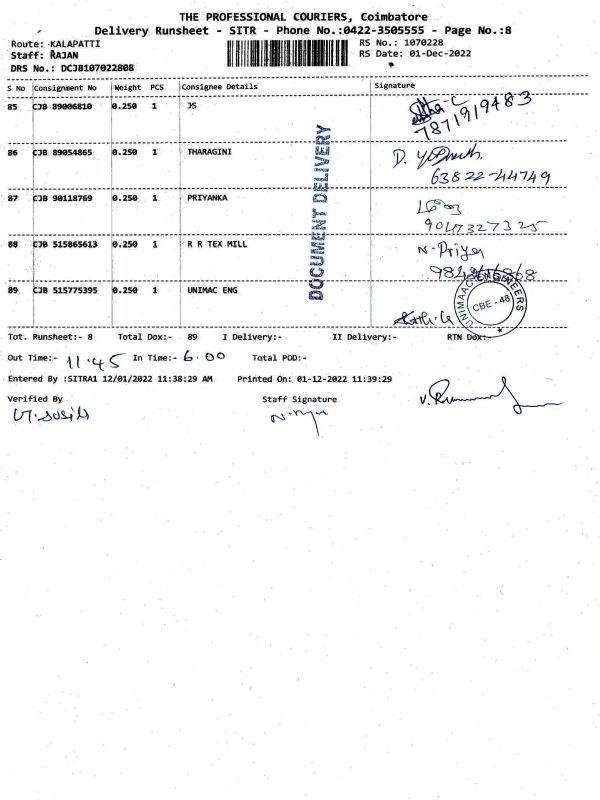 THE PROFESSIONAL COURIERS, Coimbatore
Delivery Runsheet - SITR - Phone No.:0422-3505555 - Page No.:8
Route: KALAPATTI RS No.: 1070228
Staff: RAJAN RS Date: 01-Dec-2022
DRS No.: DCJB107022808
S No Consignment No Weight PCS Consignee Details Signature
85 CJB 89006810 0.250 1 JS
7871919483
86 CJB 89054865 0.250 1 THARAGINI D.
63822-44749
87 CJB 90118769 0.250 1 PRIYANKA
9047327325
88 CJB 515865613 0.250 1 R R TEX MILL N-Priya
89 CJB 515775395 0.250 1 UNIMAC ENG
DOCUMENT DELIVERY
UNIMAACC ENGINEERS
CBE - 48
Tot. Runsheet:- 8 Total Dox:- 89 I Delivery:- II Delivery:- RTN Dox:-
Out Time:- 11.45 In Time:- 6.00 Total POD:-
Entered By :SITRA1 12/01/2022 11:38:29 AM Printed On: 01-12-2022 11:39:29
Verified By Staff Signature